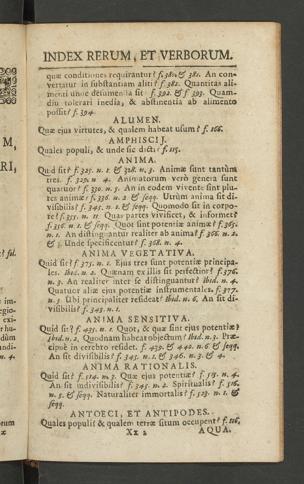 INDEX RERUM, ET VERBORUM.
quæ conditiones requirantur? f. 380. & 381. An con-
vertatur in substantiam aliti? f. 382. Quantitas ali-
menti unde desumenda sit f. 392. & f 393. Quam-
diu tolerari inedia, & abstinentia ab alimento
possit? f. 394
ALUMEN.
Quæ ejus virtutes, & qualem habeat usum? f. 166.
AMPHISCIJ.
Quales populi, & unde sic dicti? f. 115.
ANIMA.
Quid sit? f. 325. n. 1. & 328. n. 3. Animæ sunt tantùm
tres. f. 329. n 4. Animatorum verò genera sunt
quatuor? f. 330. n. 5. An in eodem vivente sint plu-
res animæ? f. 336. n. 2 & seqq. Utrùm anima sit di-
visibilis? f. 345. n. 1. & seqq. Quomodo sit in corpo-
re? f. 355. n. 11 Quas partes vivificet, & informet?
f. 356. n. 1. & seqq. Quot sint potentiæ animæ? f. 365.
n. 1. An distinguantur realiter ab anima? f. 366. n. 2.
& 3. Unde specificentur? f. 368. n. 4.
ANIMA VEGETATIVA.
Quid sit? f. 375. n. 1. Ejus tres sunt potentiæ principa-
les. Ibid. n. 2. Quænam ex illis sit perfectior? f. 376.
n. 3. An realiter inter se distinguantur? Ibid. n. 4.
Quatuor aliæ ejus potentiæ instrumentales. f. 377.
n. 5 Ubi principaliter resideat? Ibid. n. 6. An sit di-
visibilis? f. 345. n. 1.
ANIMA SENSITIVA.
Quid sit? f. 435. n. 1. Quot, & quæ sint ejus potentiæ?
Ibid. n. 2. Quodnam habeat objectum? Ibid. n. 3. Præ-
cipuè in cerebro residet. f. 439. & 440. n. 6 & seqq.
An sit divisibilis? f. 345. n. 1. & 346. n. 3. & 4.
ANIMA RATIONALIS.
Quid sit? f. 514. n. 3. Quæ ejus potentiæ? f. 515. n. 4.
An sit indivisibilis? f. 345. n. 2. Spiritualis? f. 516.
n. 5. & seqq. Naturaliter immortalis? f. 523. n. 1. &
seqq.
ANTOECI, ET ANTIPODES.
Quales populi & qualem terræ situm occupent? f. 116.
Xx 2 AQUA.